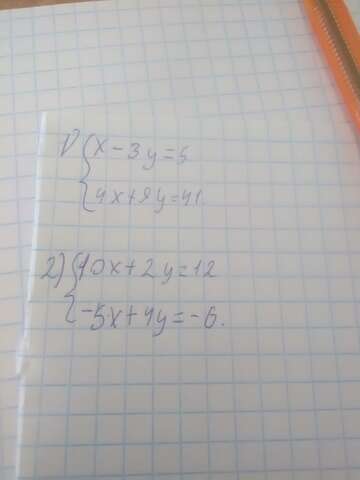 1) { x - 3y = 5
4x + 9y = 41.
2) { 10x + 2y = 12
-5x + 4y = -6.